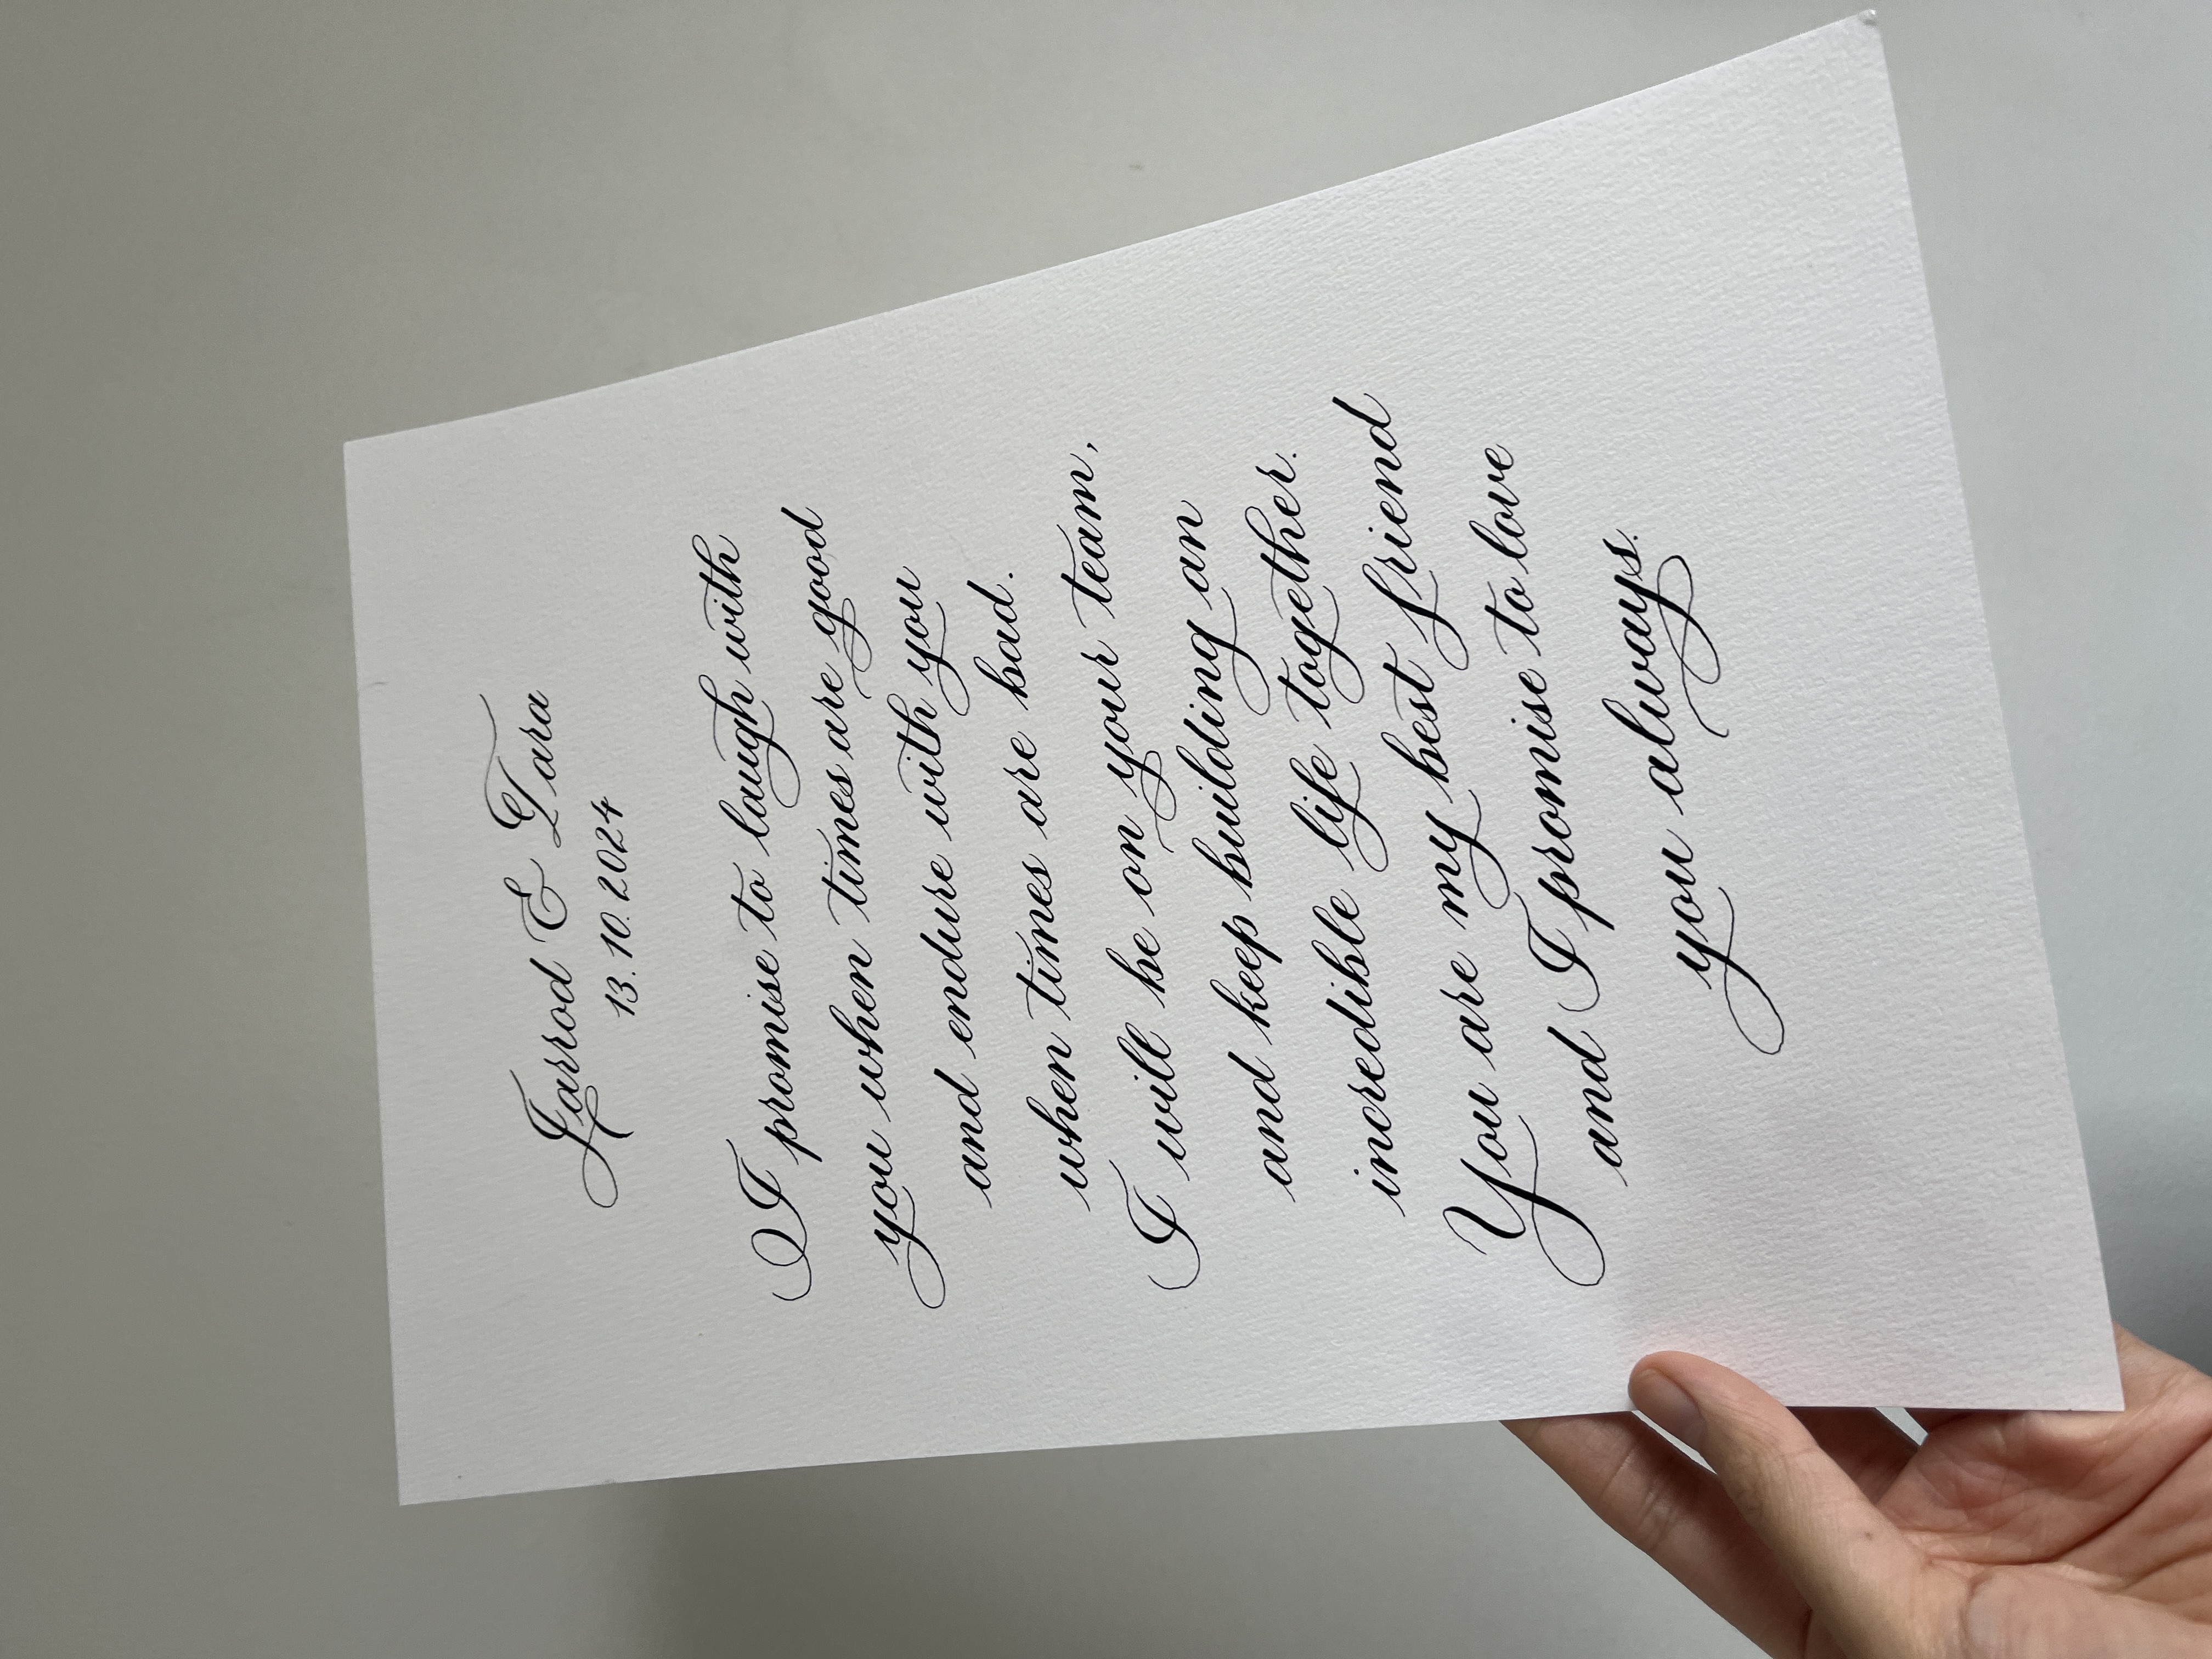 Jarrod & Tara
13.10.2024
I promise to laugh with
you when times are good
and endure with you
when times are bad.
I will be on your team,
and keep building an
incredible life together.
You are my best friend
and I promise to love
you always.